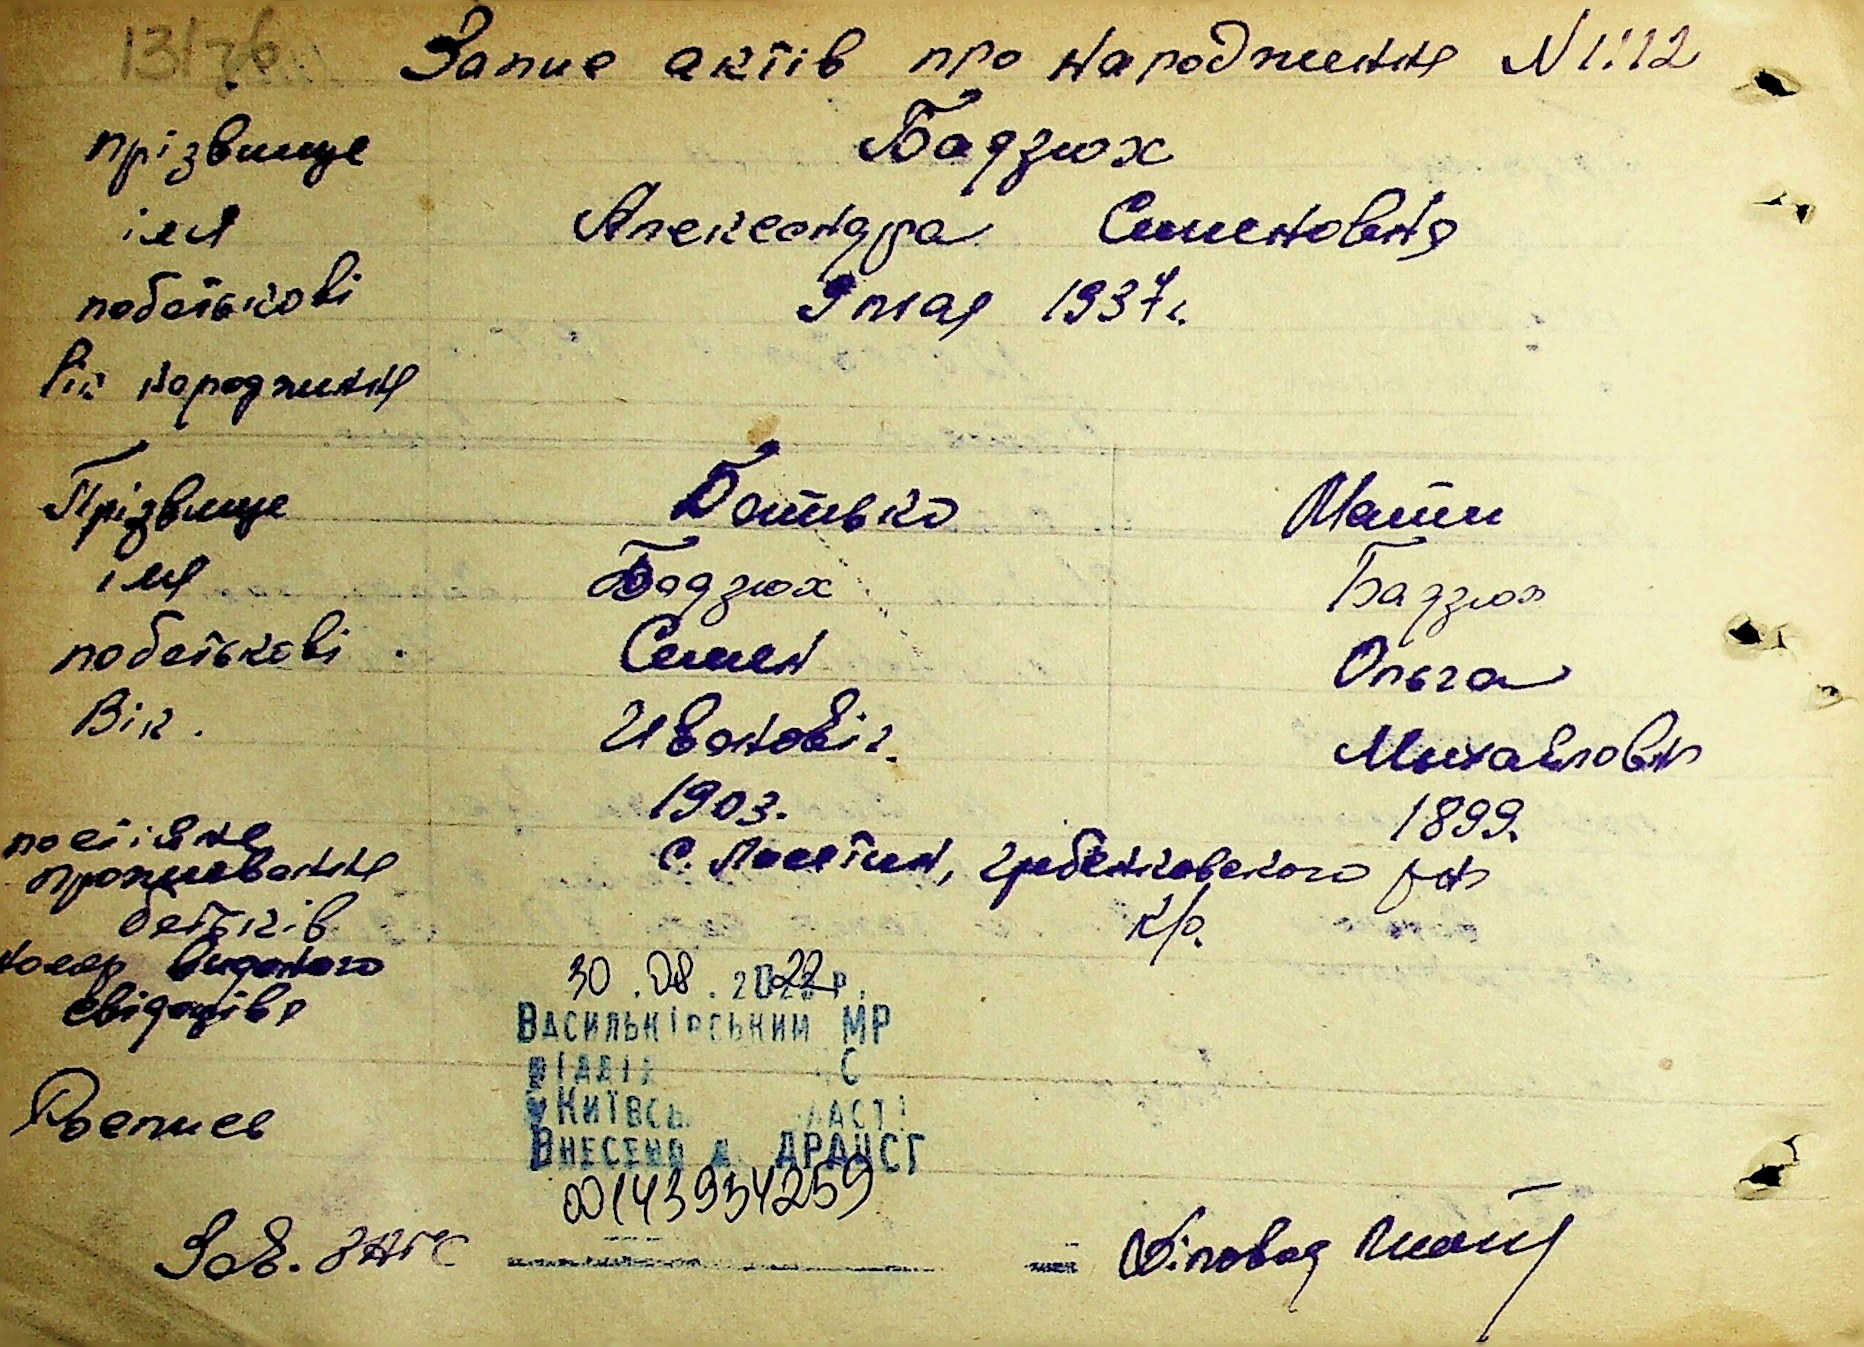 13176
Запис актів про народження N 1112
прізвище Бадзюх
імя Александра Семеновна
побатькові 9 мая 1937 г.
Рік народження
Прізвище Батько Мати
імя Бадзюх Бадзюх
побатькові Семен Ольга
Вік. Ивановіч. Михайловн
1903. 1899.
постійне
проживання с. Ластин, гребенковского рн
батьків к/о.
номер виданого
свідоцтва
30.08.2022 р.
Васильківським МР
відділ С
у Київсь ласті
Внесено д ДРАЦСГ
00143934259
Роспись
Зав. ЗАГС Діловод